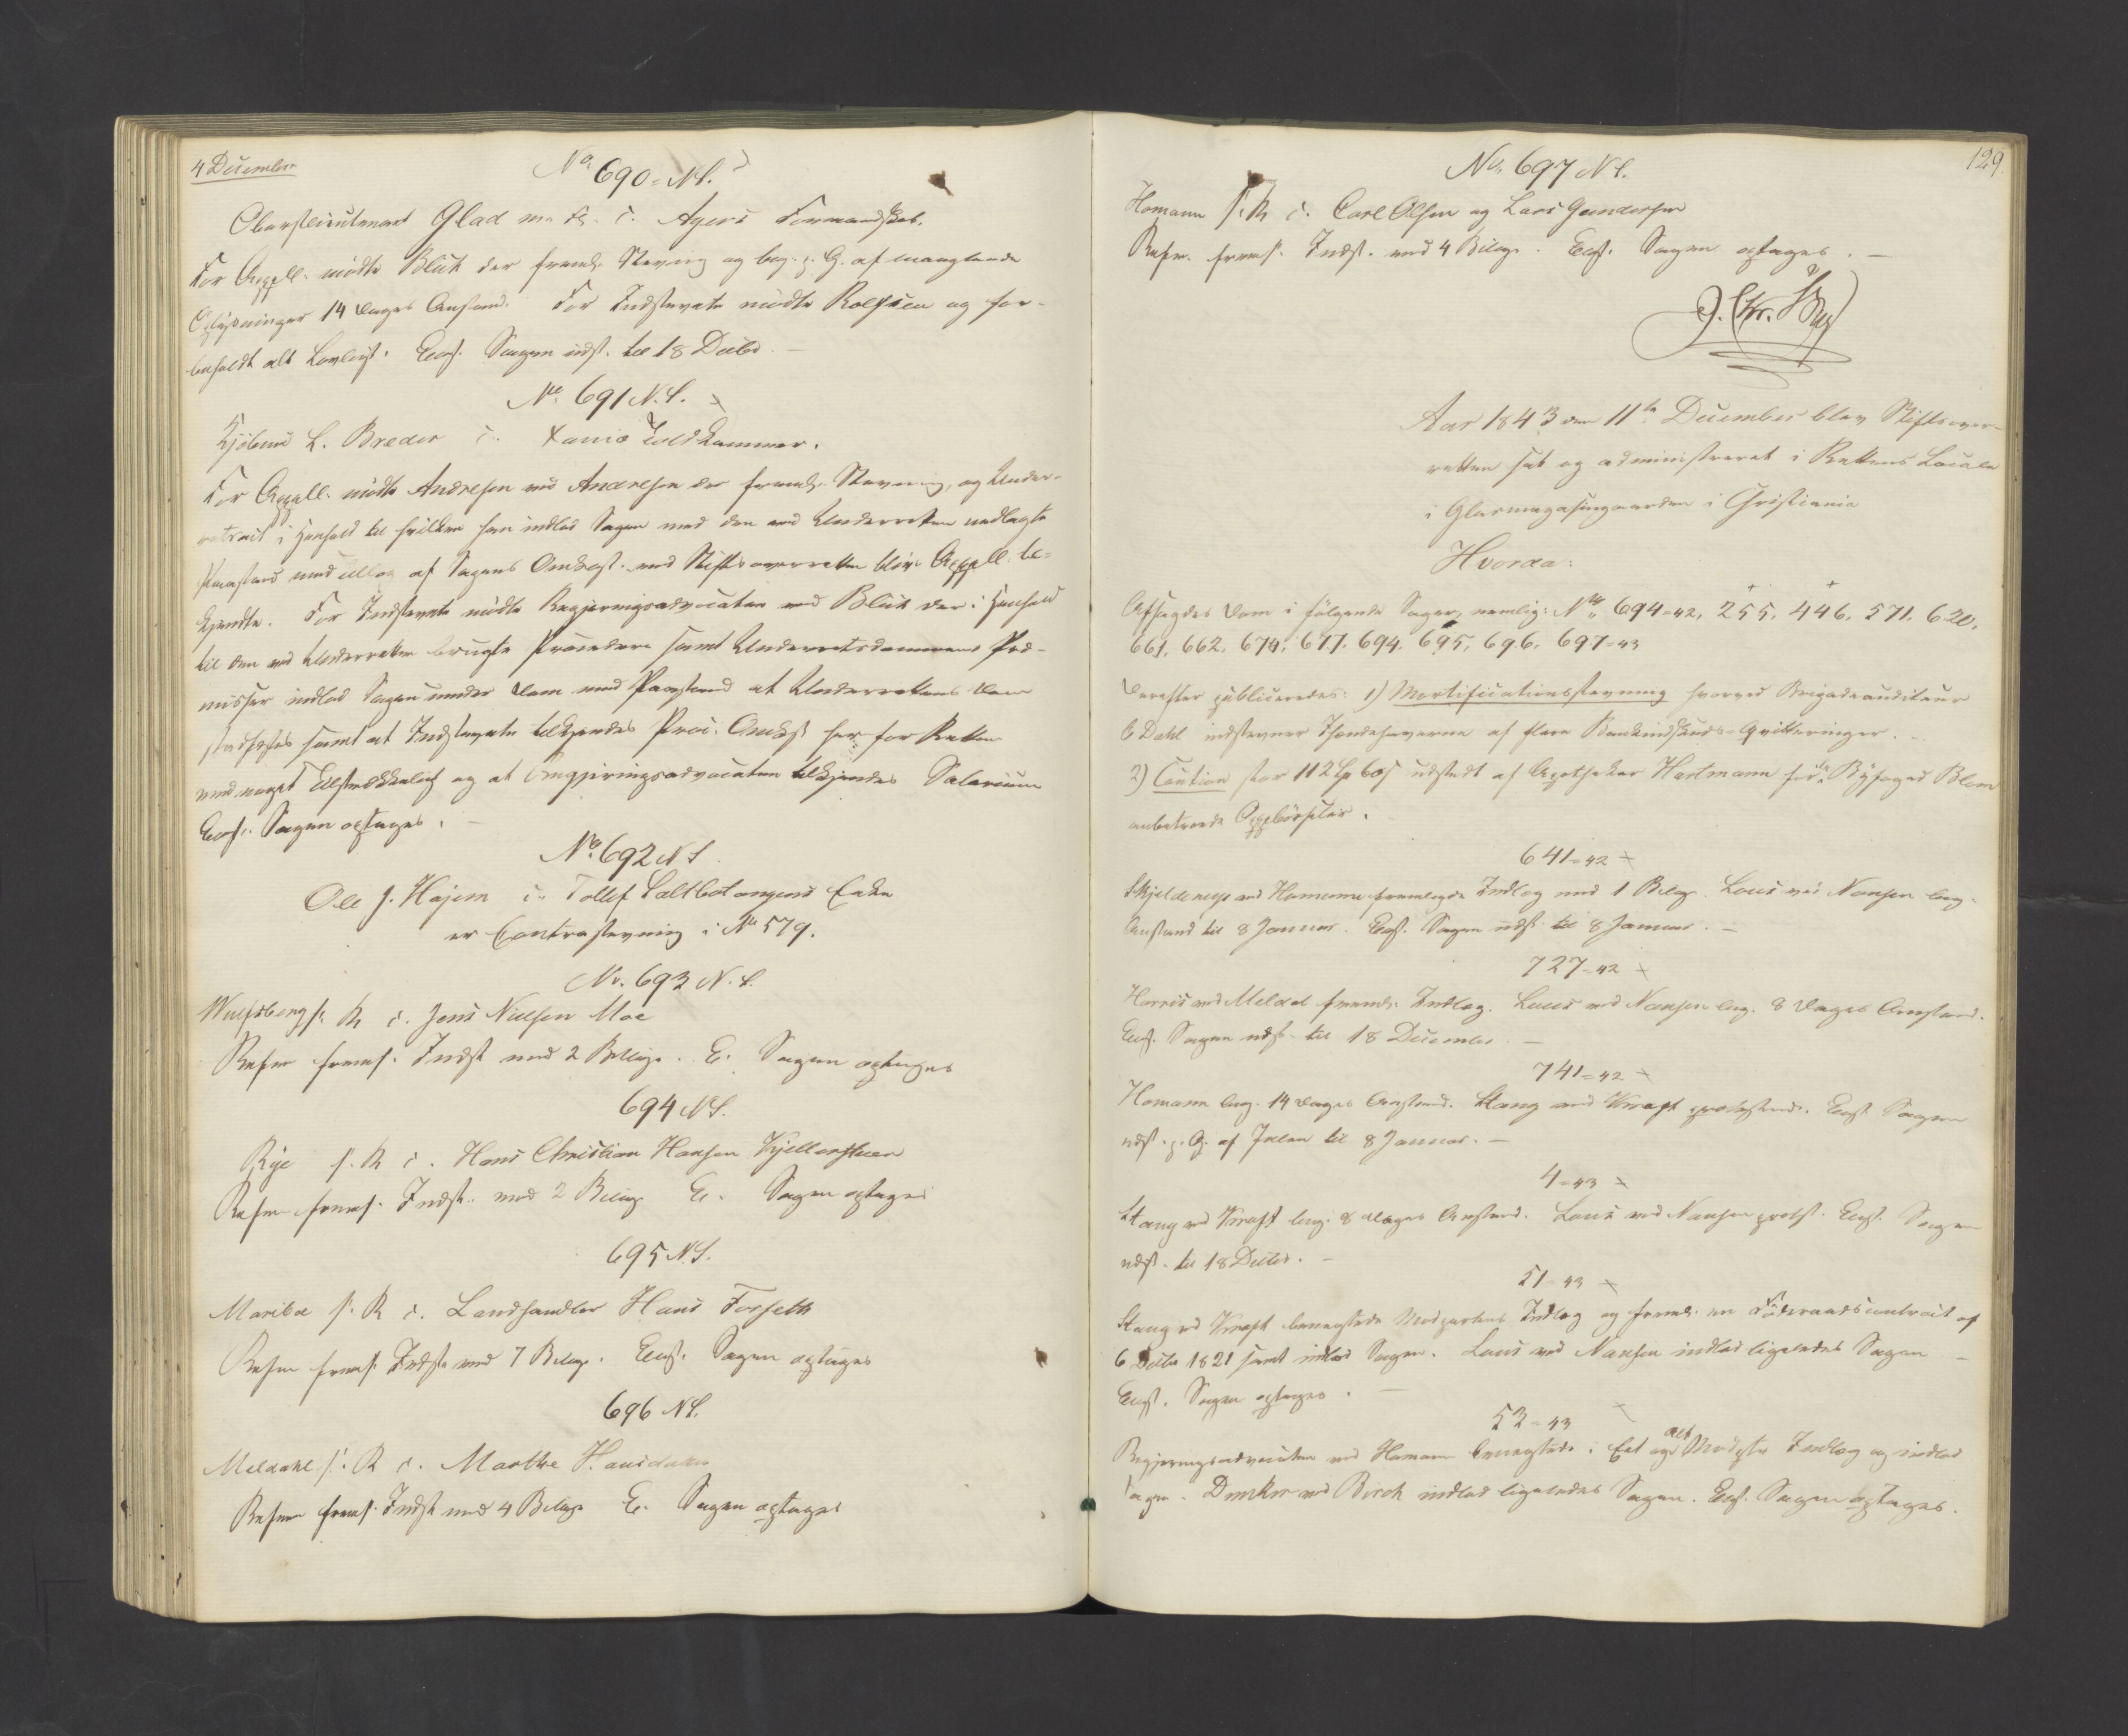 4 December
No. 690 N. S.
Oberstlieutenant Glad m. Fl. c. Agers Formandskab.
For Appell. mødte Blich der freml. Stevning og beg. p. G. af manglende
Oplysninger 14 Dages Anstand. For Indstevnte mødte Rolfsen og for-
beholdt alt Lovligt. Eragt. Sagen uds. til 18 Decbr. —
No. 691 N. S.
Kjøbmd L. Breder c. Toldkammer.
For Appell. mødte Andresen ved Andresen der freml. Stevning, og Under-
i Henhold til hvilken han indlod Sagen med den ved Underretten nedlagte
Paastand med Tillæg af Sagens Omkost. ved Stiftsoverretten bliver Appell. til-
kjendte. For Indstevnte mødte Regjeringsadvocaten ved Blich der i Henhold
til den ved Underretten brugte Procedure samt Underretsdommens Præ-
misser indlod Sagen under Dom med Paastand at Underrettens Dom
stadfæstes samt at Indstevnte tilkjendes Proc. Omkost her for Retten
med noget Tilstrækkeligt og at Regjeringsadvocaten tilkjendes Salarium
Eragt. Sagen optages. —
No. 692 N S.
Ole J. Hajem c. Tollef Saltbotangens Enke
er Contrastevning i No 579.
No. 693 N. S.
Wulfsberg s. R c. Jens Nielsen Moe
Refer freml. Indst med 2 Bilage. E. Sagen optages
694 N S.
Rye s. R c. Hans Christian Hansen Kjellerstuen
Refer freml. Indst. med 2 Bilage E. Sagen optages
695 N. S.
Mariboe s. R c. Landhandler Hans Forseth
Refer freml. Indst. med 7 Bilage. Eragt. Sagen optages
696 N S.
Meldahl s. R c. Marthe Hansdatter
Refer freml. Indst med 4 Bilage E. Sagen optages
129.
No. 697 N S.
Homann s. R c. Carl Olsen og Lars Gundersen
Refer. freml. Indst. med 4 Bilage. Eragt. Sagen optages. —
J. Chr. Berg
Aar 1843 den 11te December blev Stiftsover-
retten sat og administreret i Rettens Locale
i Glasmagasingaarden i Christiania
Hvorda:
Afsagdes Dom i følgende Sager, nemlig: No. 694=42, 255, 446, 571, 620,
661, 662, 670, 677, 694, 695, 696, 697=43
Derefter publiceredes: 1) Mortificationsstevning hvorved Brigadeauditeur
C Dahl indstevner Ihændehaverne af flere Bankindskuds-Qvitteringer. —
2) Caution stor 112 Sp 60 s udstedt af Apotheker Hartmann for Byfoged Blom
anbetroede Oppebørseler.
641=42
Skjelderup ved Homann fremlagde Indlæg med 1 Bilag. Lous ved Nansen beg.
Anstand til 8 Januar. Eragt. Sagen uds. til 8 Januar. —
727=42
Harris ved Meldal freml. Indlæg. Lous ved Nansen beg. 8 Dages Anstand.
Eragt. Sagen uds. til 18 December. —
741=42
Homann beg. 14 Dages Anstand. Stang ved Krafft protesterede. Eragt Sagen
uds. p. G. af Julen til 8 Januar. —
4=43
Stang ved Krafft beg. 8 Dages Anstand. Lous ved Nansen protst. Eragt. Sagen
uds. til 18 Decbr. —
51=43
Stang ved Krafft benegtede Modpartens Indlæg og freml. en Føderaadscontract af
6 Decbr 1821 samt indlod Sagen. Lous ved Nansen indlod ligeledes Sagen —
Eragt. Sagen optages. —
52=43
Regjeringsadvocaten ved Homann benegtede i Eet og alt Modptns Indlæg og indlod
Sagen. Dunker ved Birch indlod ligeledes Sagen. Eragt. Sagen optages.